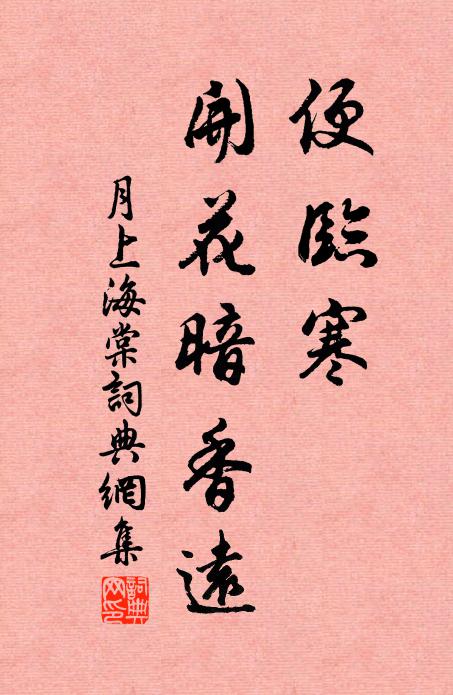 便臨寒
開花暗香遠
月上海棠詞典網集
詞典
网印